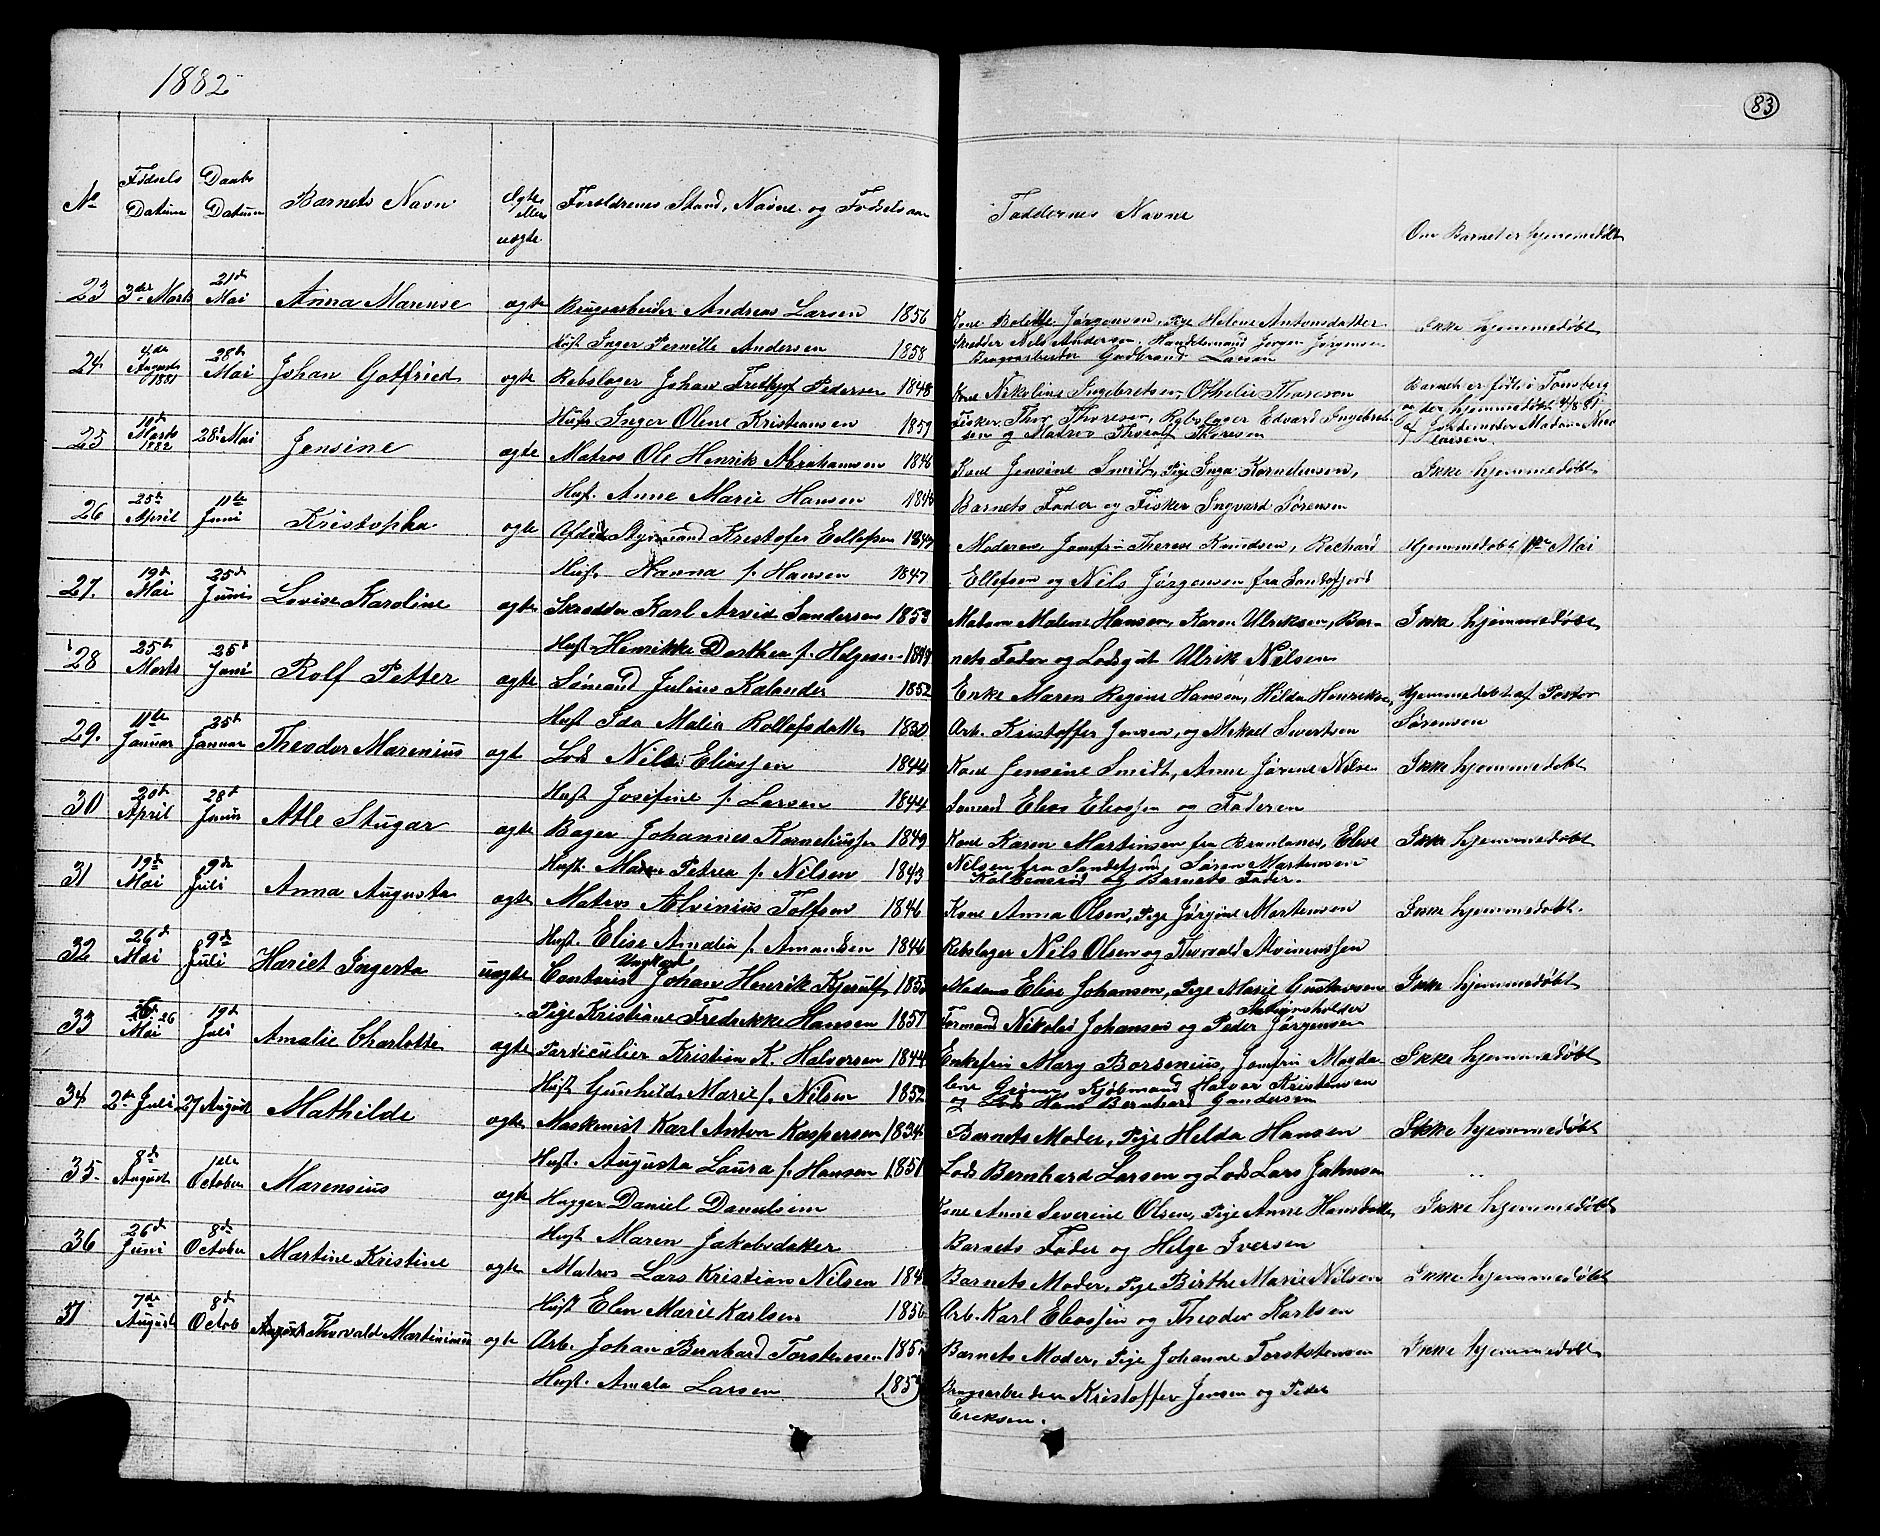 1882
83
No
Fødsels
Datum
Daabs
Datum
Barnets Navn
Ægte
eller
uægte
Forældrenes Stand, Navne og Fødselsaar
Faddernes Navne
Om Barnet er hjemmedøbt
23 3die Marts 21de Mai Anna Marense ægte Brugsarbeider Andreas Larsen 1856 Kone Bolette Jørgensen, Pige Helene Antonsdatter Ikke hjemmedøbt
Hust Inger Pernille Andersen 1858 Skrædder Nils Andersen, Handelsmand Jørgen Jørgensen
Brugsarbeider Gudbrand Larsen
24 4de August 1881 28de Mai Johan Gotfried ægte Rebslager Johan Fretthjof Pedersen 1848 Kone Nikoline Ingebretsen, Othelie Thoreson Barnet er født i Tønsberg
Hust Inger Olene Kristiansen 1859 Fisker Thor Thoresen, Rebslager Edvard Ingebret- og der hjemmedøbt 4/8 81
sen og Matros Thoralf Thoresen af Jordemoder Madam
Larsen
25 19de Marts 1882 28de Mai Jensine ægte Matros Ole Henrik Abrahamsen 1846 Kone Jensine Smidt, Pige Inga Korneliusen, Ikke hjemmedøbt
Husf. Anne Marie Hansen 1840 Barnets Fader og Fisker Ingvard Sørensen
26 25de April 11te Juni Kristopha ægte Afdød Styrmand Kristofer Ellefsen 1847 Moderen, Jomfru Therese Knudsen, Rechard Hjemmedøbt Mai
Hust. Hanna f. Hansen 1847 Ellefsen og Nils Jørgensen fra Sandefjord
27. 19de Mai 25de Juni Lovise Karoline ægte Skrædder Karl Arvid Sandersen 1853 Madam Malene Hansen, Karen Ulriksen, Bar- Ikke hjemmedøbt
Hust. Henrikke Dorthea f. Helgesen 1848 nets Fader og Lodsgut Ulrik Nilsen
28 25de Marts 25de Juni Rolf Petter ægte Sømand Julius Kalander 1852 Enke Maren Regine Hansen, Hilda Henriksen, Hjemmedøbt af Pastor
Hust Ida Malia Rollofsdatter 1850 Arb. Kristoffer Jensen, og Mekael Sivertsen Sørensen
29. 11te Januar 25de Januar Theodor Marenius ægte Lods Nils Eliassen 1844 Kone Jensine Smidt, Anne Jørene Nilsen Ikke hjemmedøbt
Hust Josefine f. Larsen 1844 Sømand Elias Eliassen og Faderen
30 20de April 28de Junus Atle Stugar ægte Bager Johannes Korneliussen 1849 Kone Karen Martinsen fra Brunlanes, Elise Ikke hjemmedøbt
Hust. Maren Petrea f. Nilsen 1843 Nilsen fra Sandefjord, Søren Martensen
Kolbensrød og Barnets Fader.
31 19de Mai 9de Juli Anna Augusta ægte Matros Alvinius Tolfsen 1846 Kone Anna Olsen, Pige Jørgine Mortensen Ikke hjemmedøbt.
Hust. Elise Amalia f. Amandsen 1846 Rebslager Nils Olsen og Thorvald Alvinussen
32 26de Mai 9de Juli Hariet Ingerta uægte Ungkarl Contorist Johan Henrik Kjerulf 185 Madam Elise Johansen, Pige Marie Gustavsen Ikke hjemmedøbt
Pige Kristiane Fredrikke Hansen 1857 Formand Nikolai Johansen og Stationsholder Peder Jørgensen
33 26 Mai 19de Juli Amalie Charlotte ægte Particulier Kristian K. Halvorsen 1844 Enkefru Mary Borsenius, Jomfru Magda- Ikke hjemmedøbt
Hust Gunhilda Marie f. Nilsen 1852 lene Kjøbmand Halvor Kristensen
og Lods Hans Bernhard Gundersen
34 2de Juli 27 August Mathilde ægte Maskinist Karl Anton Kaspersen 1834 Barnets Moder, Pige Helda Hansen Ikke hjemmedøbt
Hust. Augusta Laura f. Hansen 1851 Lods Bernhard Larsen og Lods Lars Jahnsen
35. 8de August 1ste October Marensius ægte Hugger Daniel Danielsen Kone Anne Severine Olsen, Pige Anne Hansdatter, Ikke hjemmedøbt
Hust Maren Jakobsdatter Barnets Fader og Helge Iversen
36 26de Juni 8de October Martine Kristine ægte Matros Lars Kristians Nilsen 184 Barnets Moder, Pige Birthe Marie Nilsen Ikke hjemmedøbt
Hust Elen Marie Karlsen 1850 Arb. Karl Eliassen og Theodor Karlsen
37 7de August 8de Octob August Thorvald Martinimus ægte Arb. Johan Bernhard Torstensen 185 Barnets Moder, Pige Johanne Torstensen Ikke hjemmedøbt
Hust. Amala Larsen 185 Brugsarbeideren Kristoffer Jensen og Peder
Ericksen.